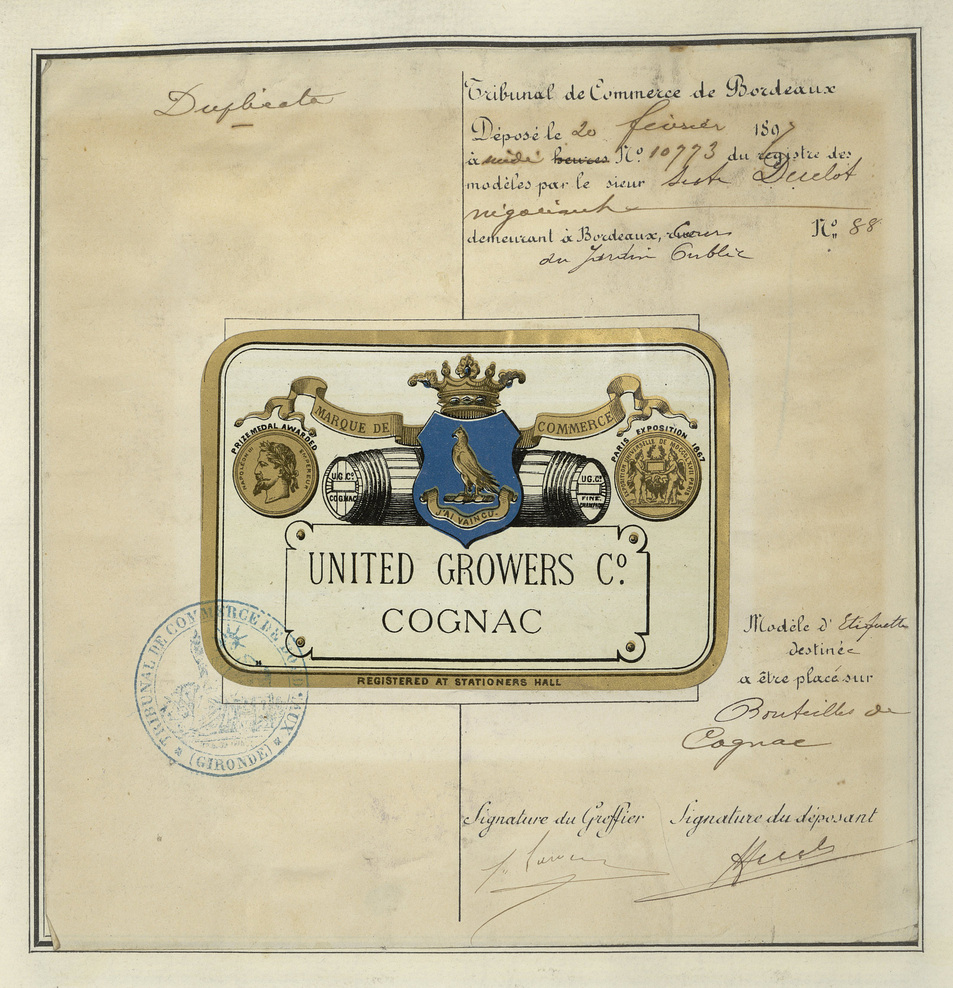 Duplicata
Tribunal de Commerce de Bordeaux
Déposé le 20 février 1897
à midi heures No 10773 du registre des
modèles par le sieur Duclot
négociant
demeurant à Bordeaux, rue Cours No 88
du Jardin Public
MARQUE DE COMMERCE
PRIZE MEDAL AWARDED
PARIS EXPOSITION 1867
NAPOLEON III EMPEREUR
U.G.Co
COGNAC
U.G.Co
FINE
CHAMPAGNE
J'AI VAINCU.
UNITED GROWERS Co.
COGNAC
REGISTERED AT STATIONERS HALL
TRIBUNAL DE COMMERCE DE BORDEAUX
(GIRONDE)
Modèle d'Etiquette
destinée
a être placé sur
Bouteilles de
Cognac
Signature du Greffier Signature du déposant